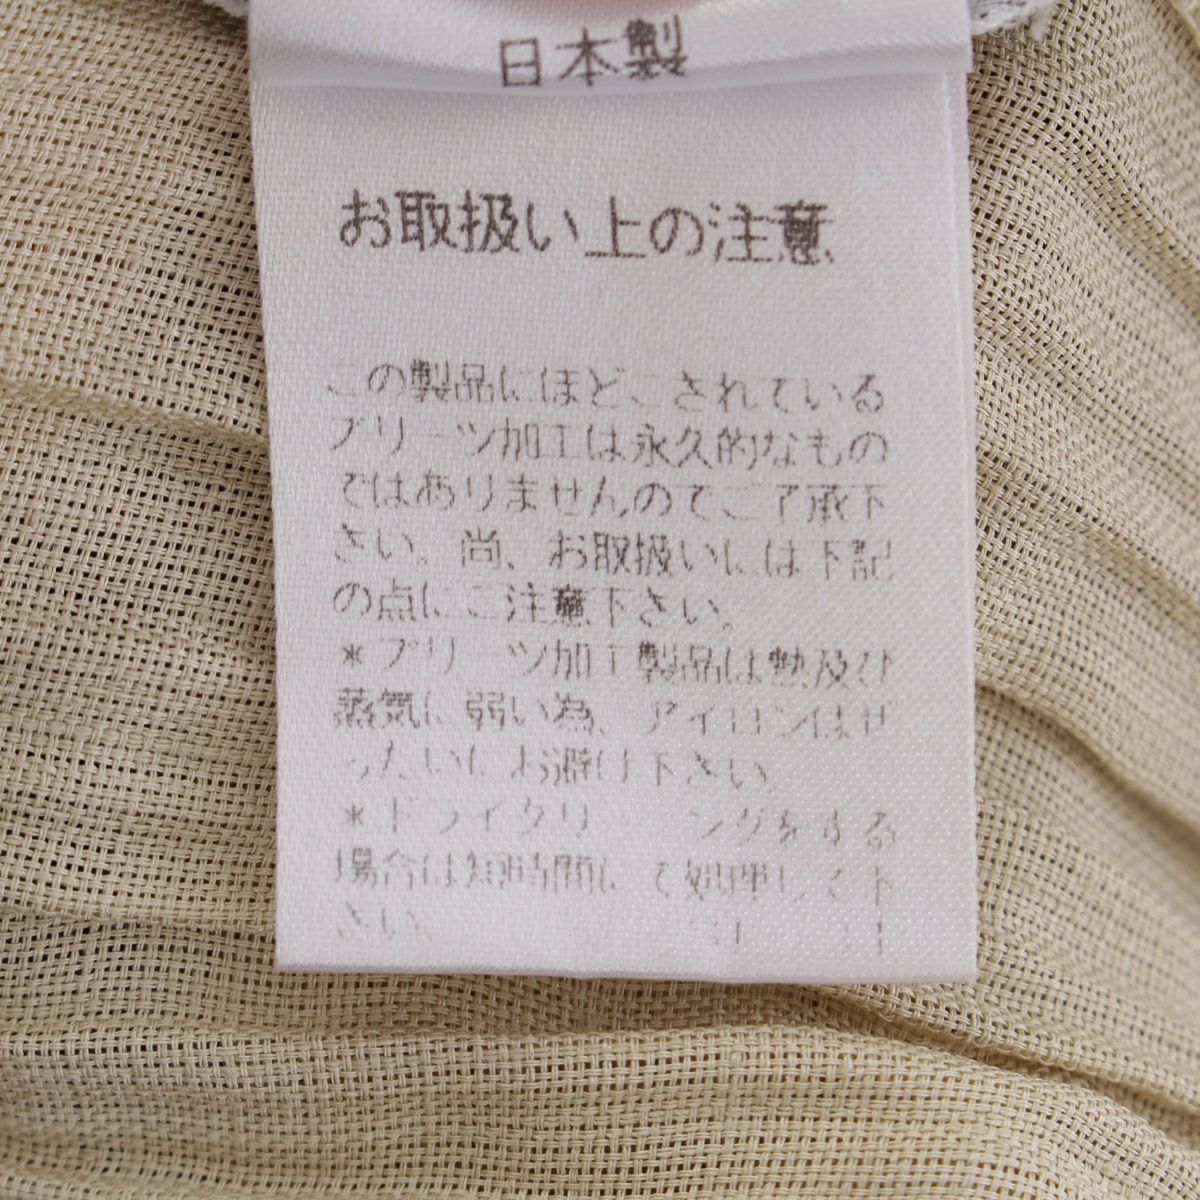 日本製
お取扱い上の注意
この製品にほどこされている
プリーツ加工は永久的なもの
ではありませんのでご了承下
さい。尚、お取扱いには下記
の点にご注意下さい。
*プリーツ加工製品は熱及び
蒸気に弱い為、アイロンはぜ
ったいにお避け下さい。
*ドライクリーニングをする
場合は短時間にて処理して下
さい